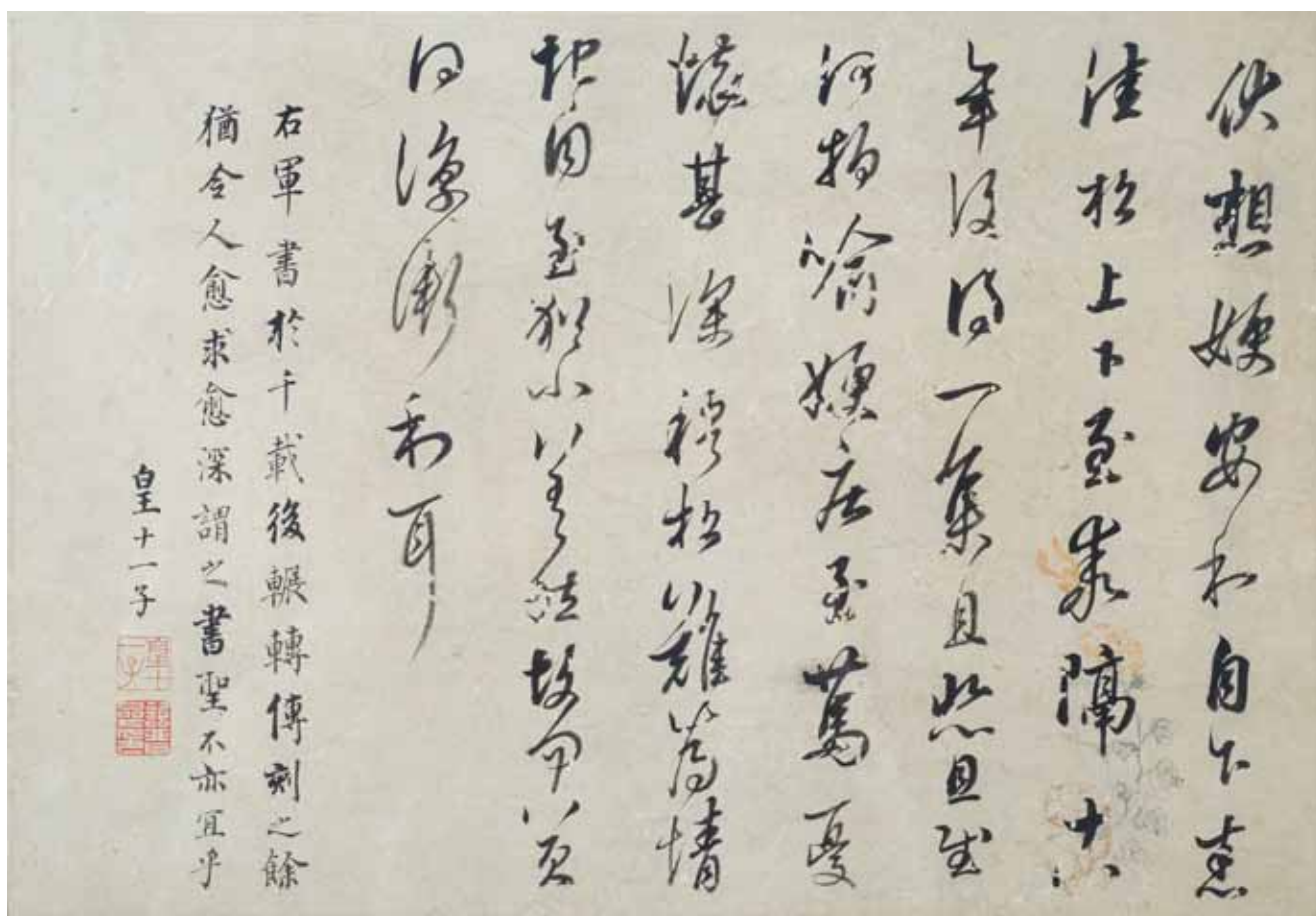 伏想嫂安和自下悉
佳松上下至乖隔十八
年復得一集且悲且慰
何物喻嫂疾至篤憂
懷甚深穆松難為情
地自至猶小差然故勿勿冀
得涼漸和耳
右軍書於千載後輾轉傳刻之餘
猶令人愈求愈深謂之書聖不亦宜乎
皇十一子
皇十一子